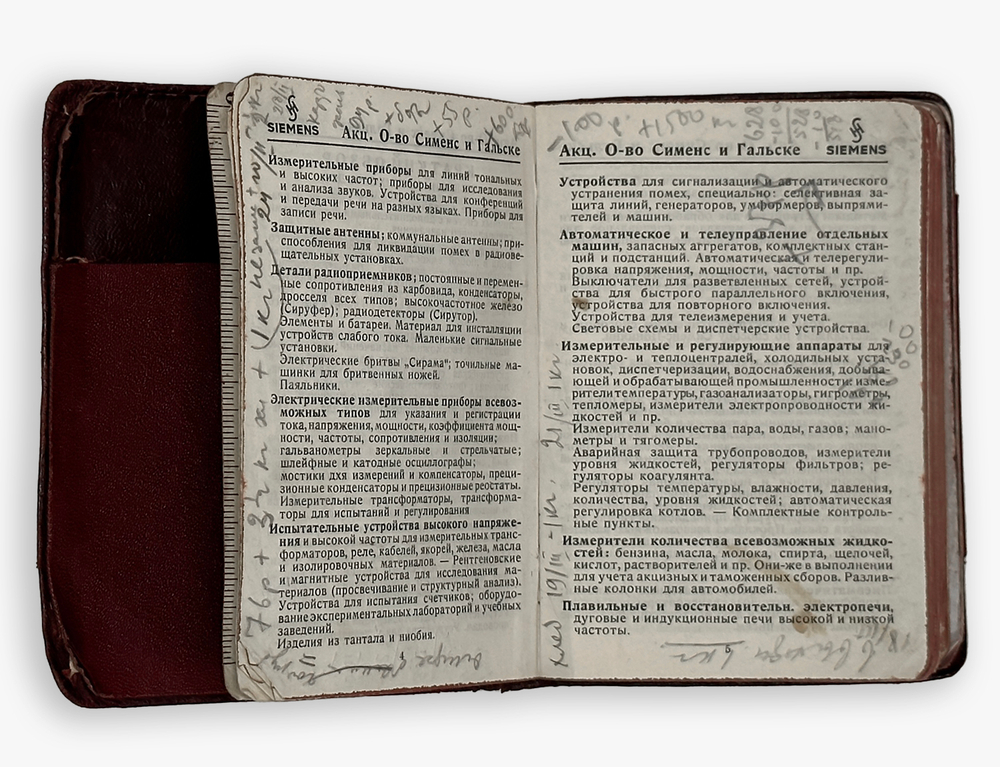 SIEMENS
Акц. О-во Сименс и Гальске
Измерительные приборы для линий тональных
и высоких частот; приборы для исследования
и анализа звуков. Устройства для конференций
и передачи речи на разных языках. Приборы для
записи речи.
Защитные антенны; коммунальные антенны; при-
способления для ликвидации помех в радиове-
щательных установках.
Детали радиоприемников; постоянные и перемен-
ные сопротивления из карбовида, конденсаторы,
дросселя всех типов; высокочастотное железо
(Сируфер); радиодетекторы (Сирутор).
Элементы и батареи. Материал для инсталляции
устройств слабого тока. Маленькие сигнальные
установки.
Электрические бритвы „Сирама“; точильные ма-
шинки для бритвенных ножей.
Паяльники.
Электрические измерительные приборы всевоз-
можных типов для указания и регистрации
тока, напряжения, мощности, коэффициента мощ-
ности, частоты, сопротивления и изоляции;
гальванометры зеркальные и стрельчатые;
шлейфные и катодные осциллографы;
мостики дхя измерений и компенсаторы, преци-
зионные конденсаторы и прецизионные реостаты.
Измерительные трансформаторы, трансформа-
торы для испытаний и регулирования
Испытательные устройства высокого напряже-
ния и высокой частоты для измерительных транс-
форматоров, реле, кабелей, якорей, железа, масла
и изолировочных материалов. — Рентгеновские
и магнитные устройства для исследования ма-
териалов (просвечивание и структурный анализ).
Устройства для испытания счетчиков; оборудо-
вание экспериментальных лабораторий и учебных
заведений.
Изделия из тантала и ниобия.
4
Акц. О-во Сименс и Гальске
SIEMENS
Устройства для сигнализации и автоматического
устранения помех, специально: селективная за-
щита линий, генераторов, умформеров, выпрями-
телей и машин.
Автоматическое и телеуправление отдельных
машин, запасных аггрегатов, комплектных стан-
ций и подстанций. Автоматическая и телерегули-
ровка напряжения, мощности, частоты и пр.
Выключатели для разветвленных сетей, устрой-
ства для быстрого параллельного включения,
устройства для повторного включения.
Устройства для телеизмерения и учета.
Световые схемы и диспетчерские устройства.
Измерительные и регулирующие аппараты для
электро- и теплоцентралей, холодильных уста-
новок, диспетчеризации, водоснабжения, добыва-
ющей и обрабатывающей промышленности: изме-
рители температуры, газоанализаторы, гигрометры,
тепломеры, измерители электропроводности жи-
дкостей и пр.
Измерители количества пара, воды, газов; мано-
метры и тягомеры.
Аварийная защита трубопроводов, измерители
уровня жидкостей, регуляторы фильтров; ре-
гуляторы коагулянта.
Регуляторы температуры, влажности, давления,
количества, уровня жидкостей; автоматическая
регулировка котлов. — Комплектные контроль-
ные пункты.
Измерители количества всевозможных жидко-
стей: бензина, масла, молока, спирта, щелочей,
кислот, растворителей и пр. Они-же в выполнении
для учета акцизных и таможенных сборов. Разлив-
ные колонки для автомобилей.
Плавильные и восстановительн. электропечи,
дуговые и индукционные печи высокой и низкой
частоты.